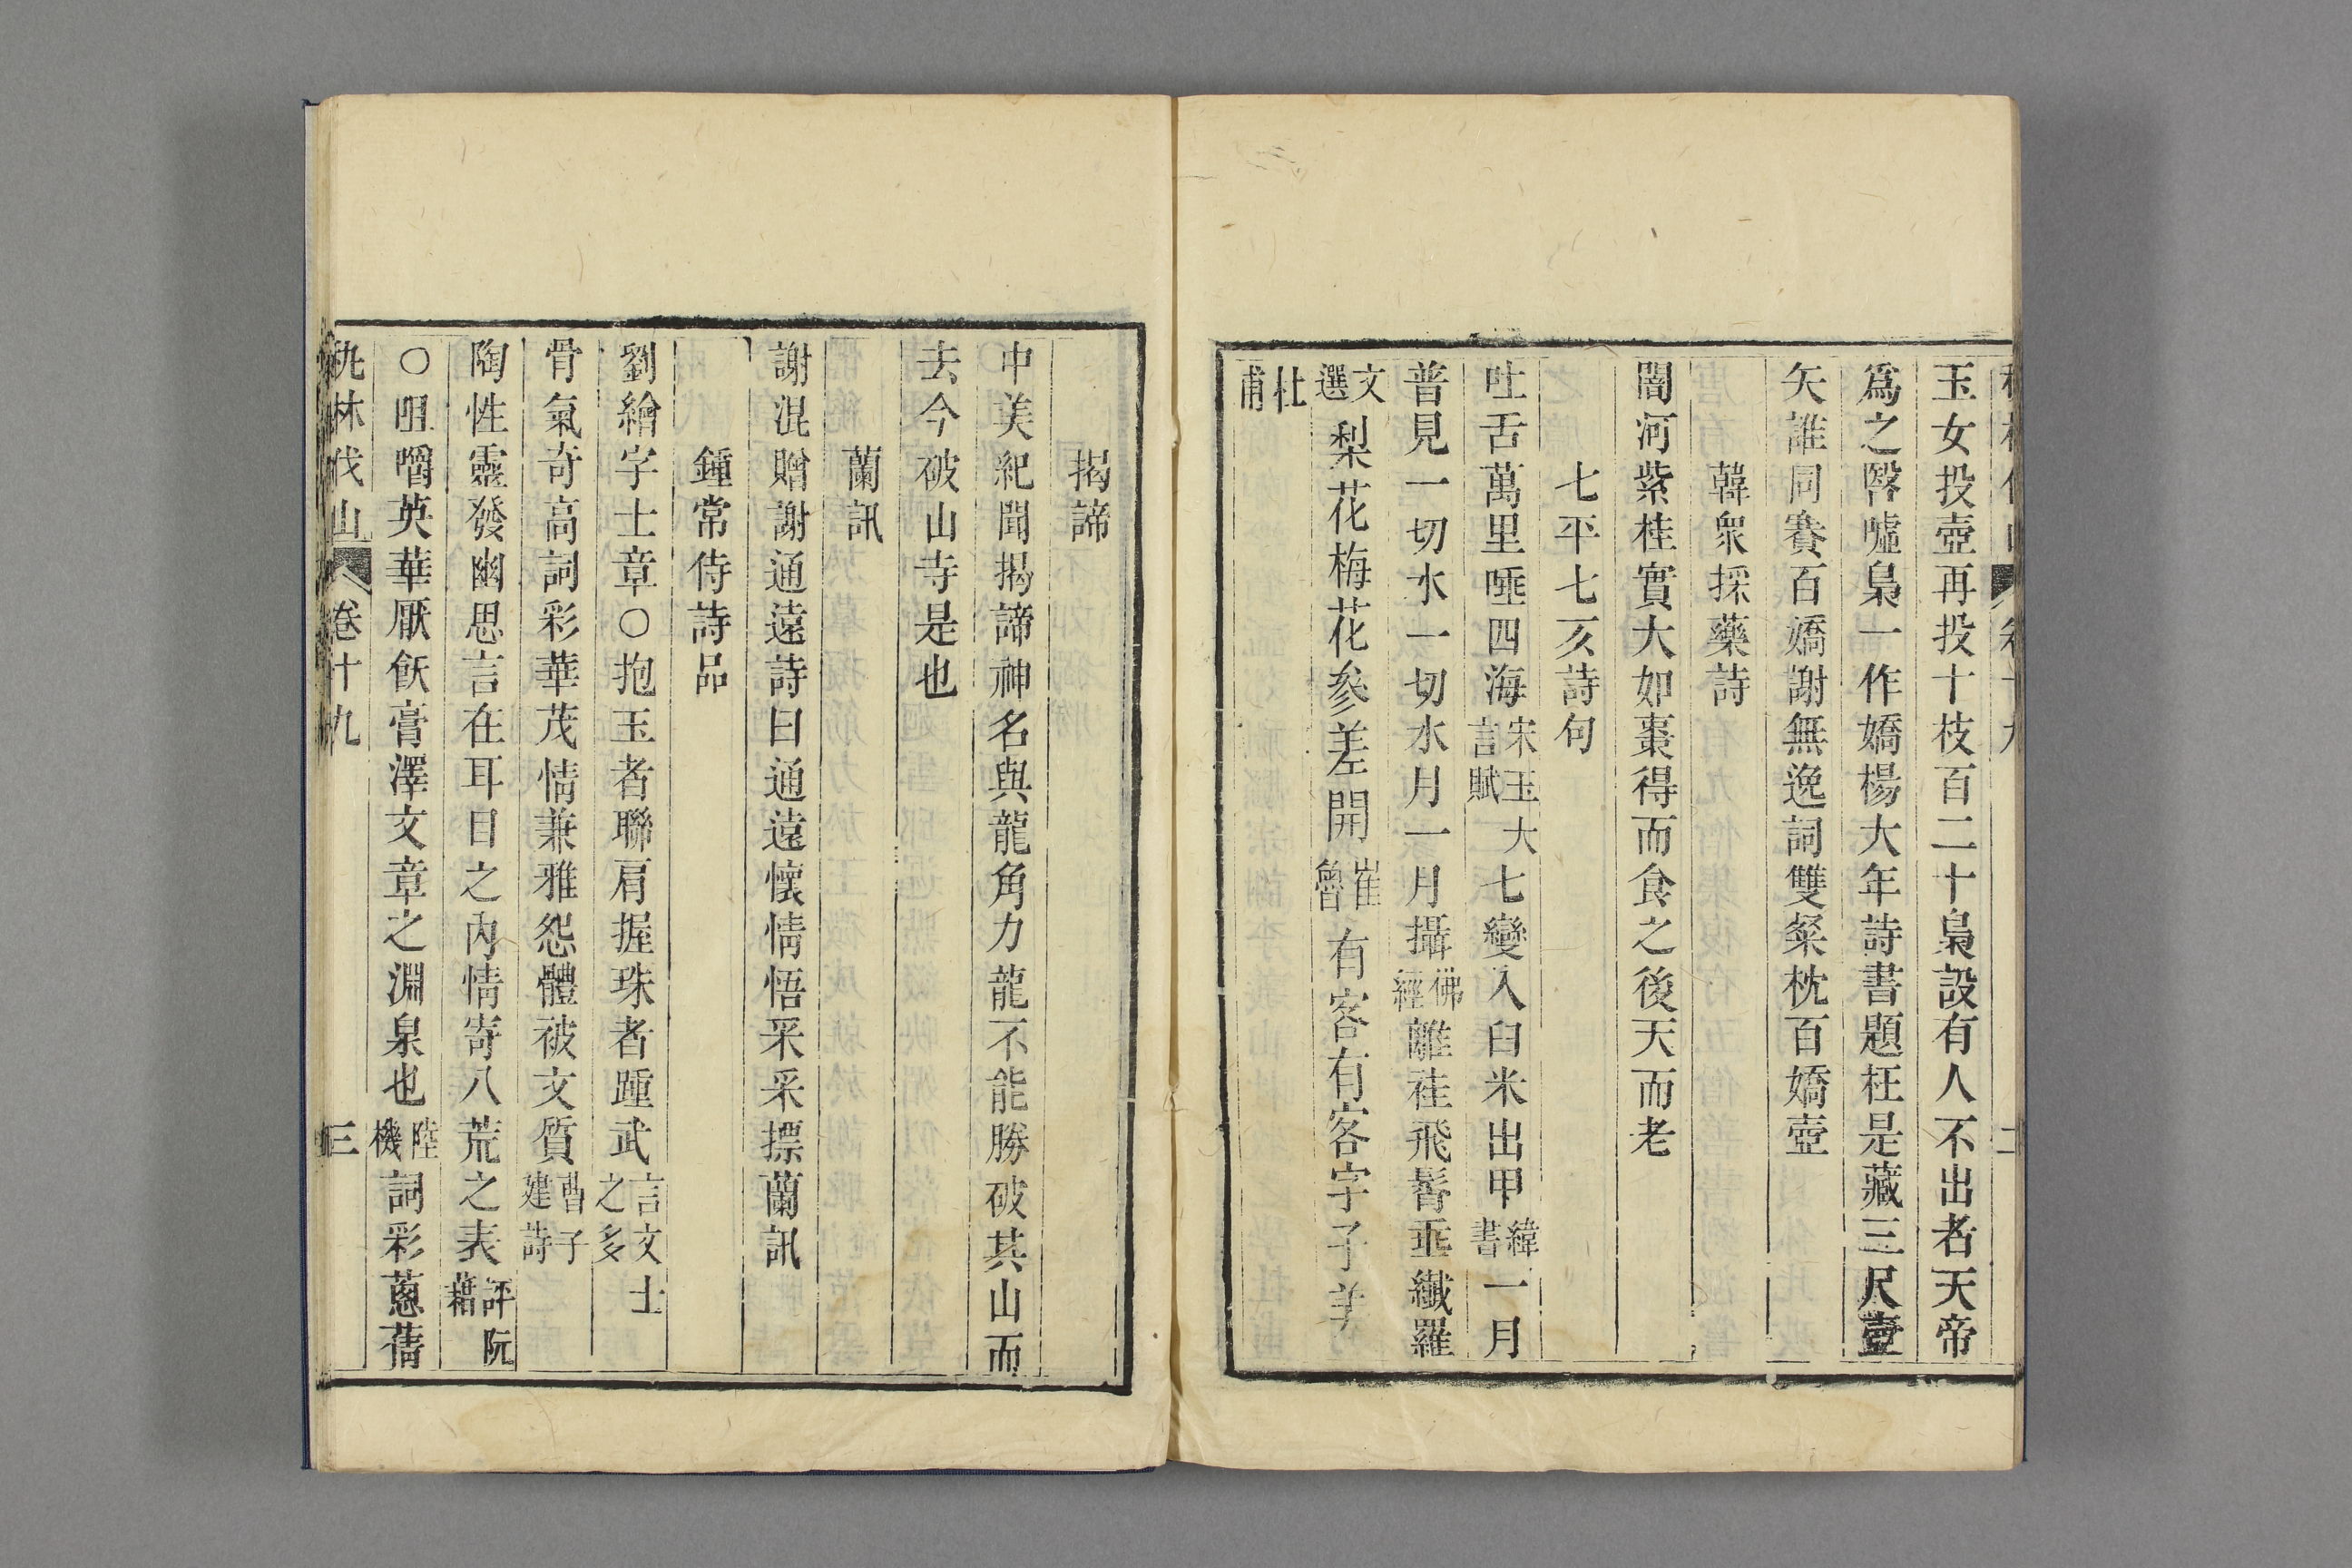 玉女投壺再投十枝百二十梟設有人不出者天帝
爲之醫噓梟一作嬌楊大年詩書題枉是藏三尺壺
矢誰同賽百嬌謝無逸詞雙粲枕百嬌壺
韓衆採藥詩
闇河紫桂實大如棗得而食之後天而老
七平七仄詩句
吐舌萬里唾四海宋玉大言賦七變入臼米出甲緯書一月
普見一切水一切水月一月攝佛經離袿飛髾垂纖羅
文選梨花梅花參差開崔魯有客有客字子美
杜甫
揭諦
中美紀聞揭諦神名與龍角力龍不能勝破其山而
去今破山寺是也
蘭訊
謝混贈謝通遠詩曰通遠懷情悟采采摽蘭訊
鍾常侍詩品
劉繪字士章○抱玉者聯肩握珠者踵武言文士之多
骨氣奇高詞彩華茂情兼雅怨體被文質曹子建詩
陶性靈發幽思言在耳目之內情寄八荒之表評阮籍
○咀嚼英華厭飫膏澤文章之淵泉也陸機詞彩蔥蒨
秇林伐山 卷十九 三